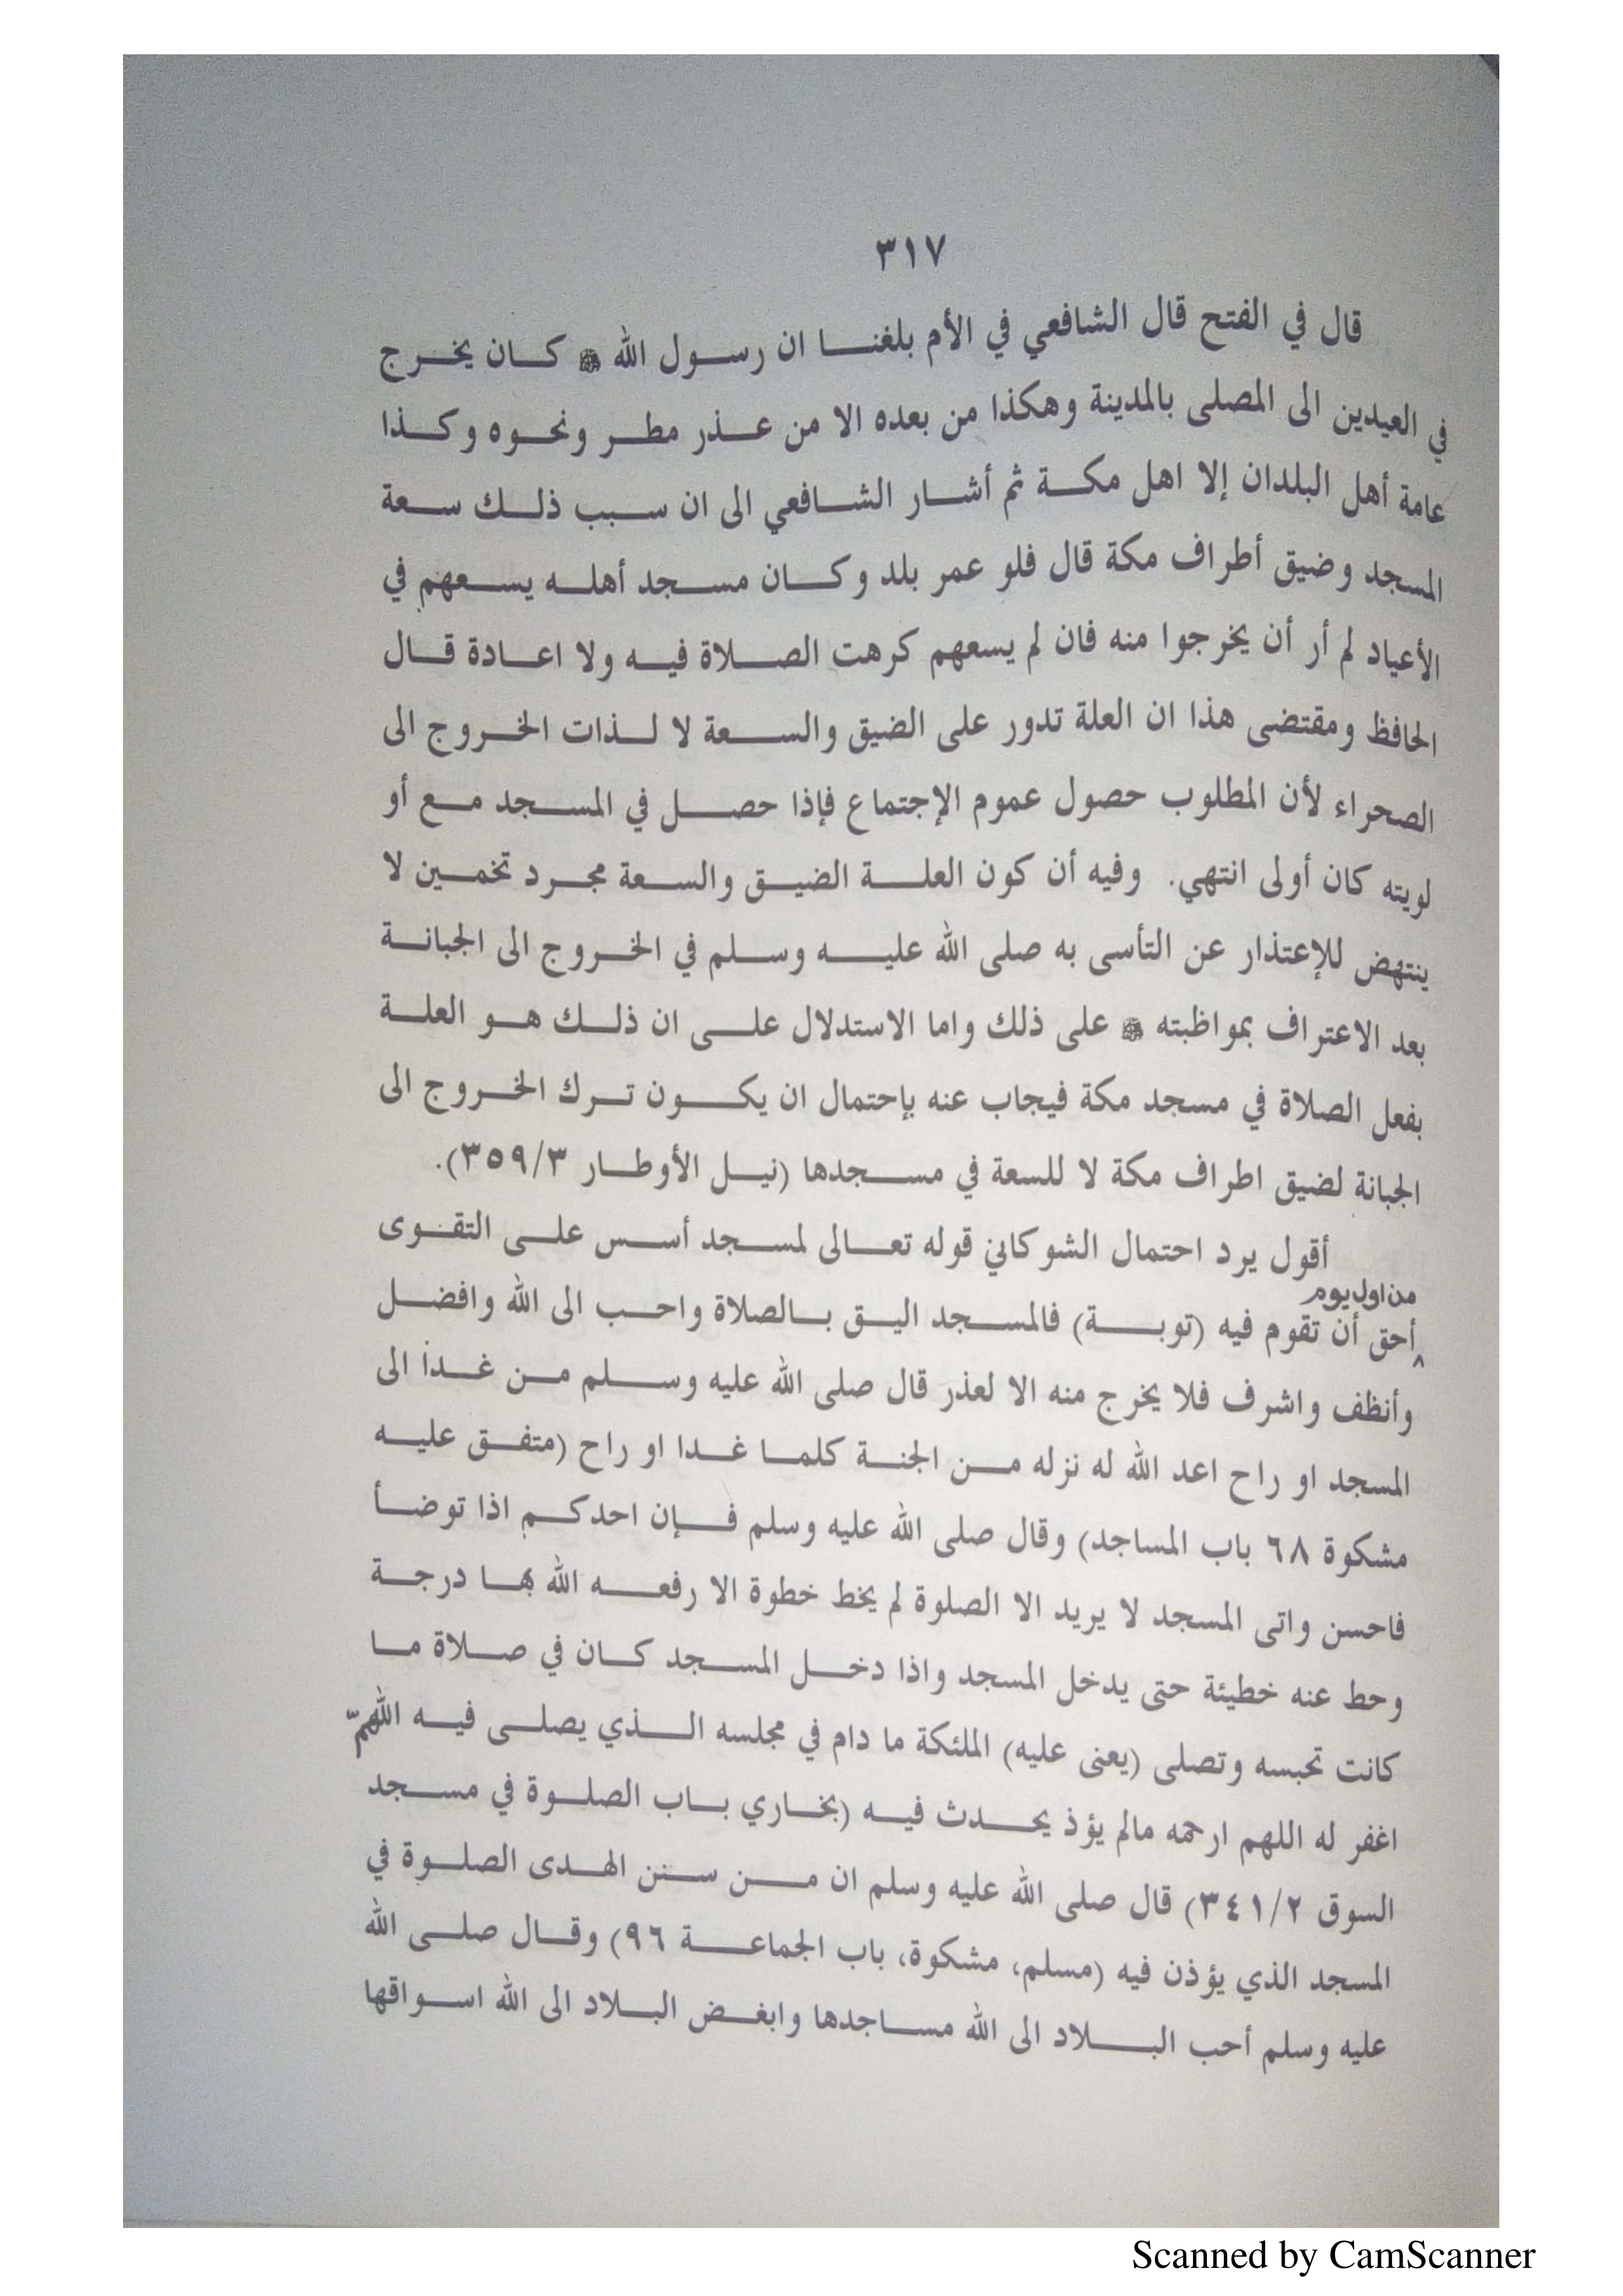 ٣١٧
قال في الفتح قال الشافعي في الأم بلغنا ان رسول الله ﷺ كان يخرج
في العيدين الى المصلى بالمدينة وهكذا من بعده الا من عذر مطر ونحوه وكذا
عامة أهل البلدان إلا اهل مكة ثم أشار الشافعي الى ان سبب ذلك سعة
المسجد وضيق أطراف مكة قال فلو عمر بلد وكان مسجد أهله يسعهم في
الأعياد لم أر أن يخرجوا منه فان لم يسعهم كرهت الصلاة فيه ولا اعادة قال
الحافظ ومقتضى هذا ان العلة تدور على الضيق والسعة لا لذات الخروج الى
الصحراء لأن المطلوب حصول عموم الإجتماع فإذا حصل في المسجد مع أو
لويته كان أولى انتهي. وفيه أن كون العلة الضيق والسعة مجرد تخمين لا
ينتهض للإعتذار عن التأسى به صلى الله عليه وسلم في الخروج الى الجبانة
بعد الاعتراف بمواظبته ﷺ على ذلك واما الاستدلال على ان ذلك هو العلة
بفعل الصلاة في مسجد مكة فيجاب عنه بإحتمال ان يكون ترك الخروج الى
الجبانة لضيق اطراف مكة لا للسعة في مسجدها (نيل الأوطار ٣٥٩/٣).
أقول يرد احتمال الشوكاني قوله تعالى لمسجد أسس على التقوى
من اول يوم
أحق أن تقوم فيه (توبة) فالمسجد اليق بالصلاة واحب الى الله وافضل
وأنظف واشرف فلا يخرج منه الا لعذر قال صلى الله عليه وسلم من غدا الى
المسجد او راح اعد الله له نزله من الجنة كلما غدا او راح (متفق عليه
مشكوة ٦٨ باب المساجد) وقال صلى الله عليه وسلم فإن احدكم اذا توضأ
فاحسن واتى المسجد لا يريد الا الصلوة لم يخط خطوة الا رفعه الله بها درجة
وحط عنه خطيئة حتى يدخل المسجد واذا دخل المسجد كان في صلاة ما
كانت تحبسه وتصلى (يعنى عليه) الملئكة ما دام في مجلسه الذي يصلى فيه اللهمّ
اغفر له اللهم ارحمه مالم يؤذ يحدث فيه (بخاري باب الصلوة في مسجد
السوق ٣٤١/٢) قال صلى الله عليه وسلم ان من سنن الهدى الصلوة في
المسجد الذي يؤذن فيه (مسلم، مشكوة، باب الجماعة ٩٦) وقال صلى الله
عليه وسلم أحب البلاد الى الله مساجدها وابغض البلاد الى الله اسواقها
Scanned by CamScanner